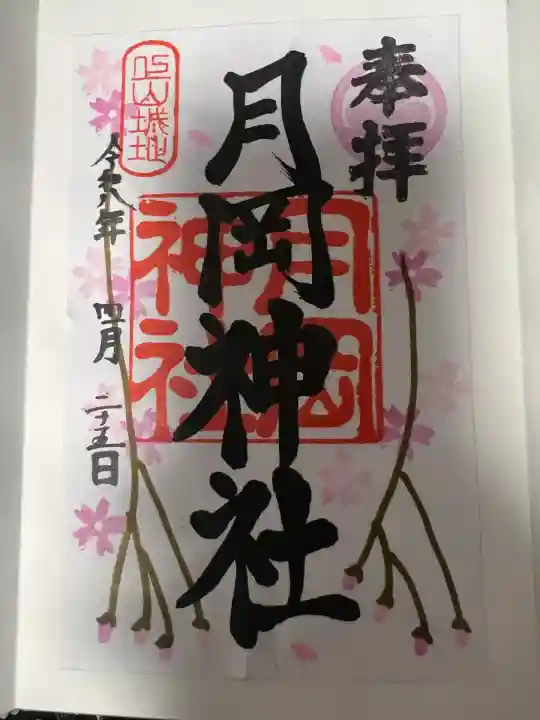 奉拝
月岡神社
月岡神社
上山城址
令和八年 四月 二十五日